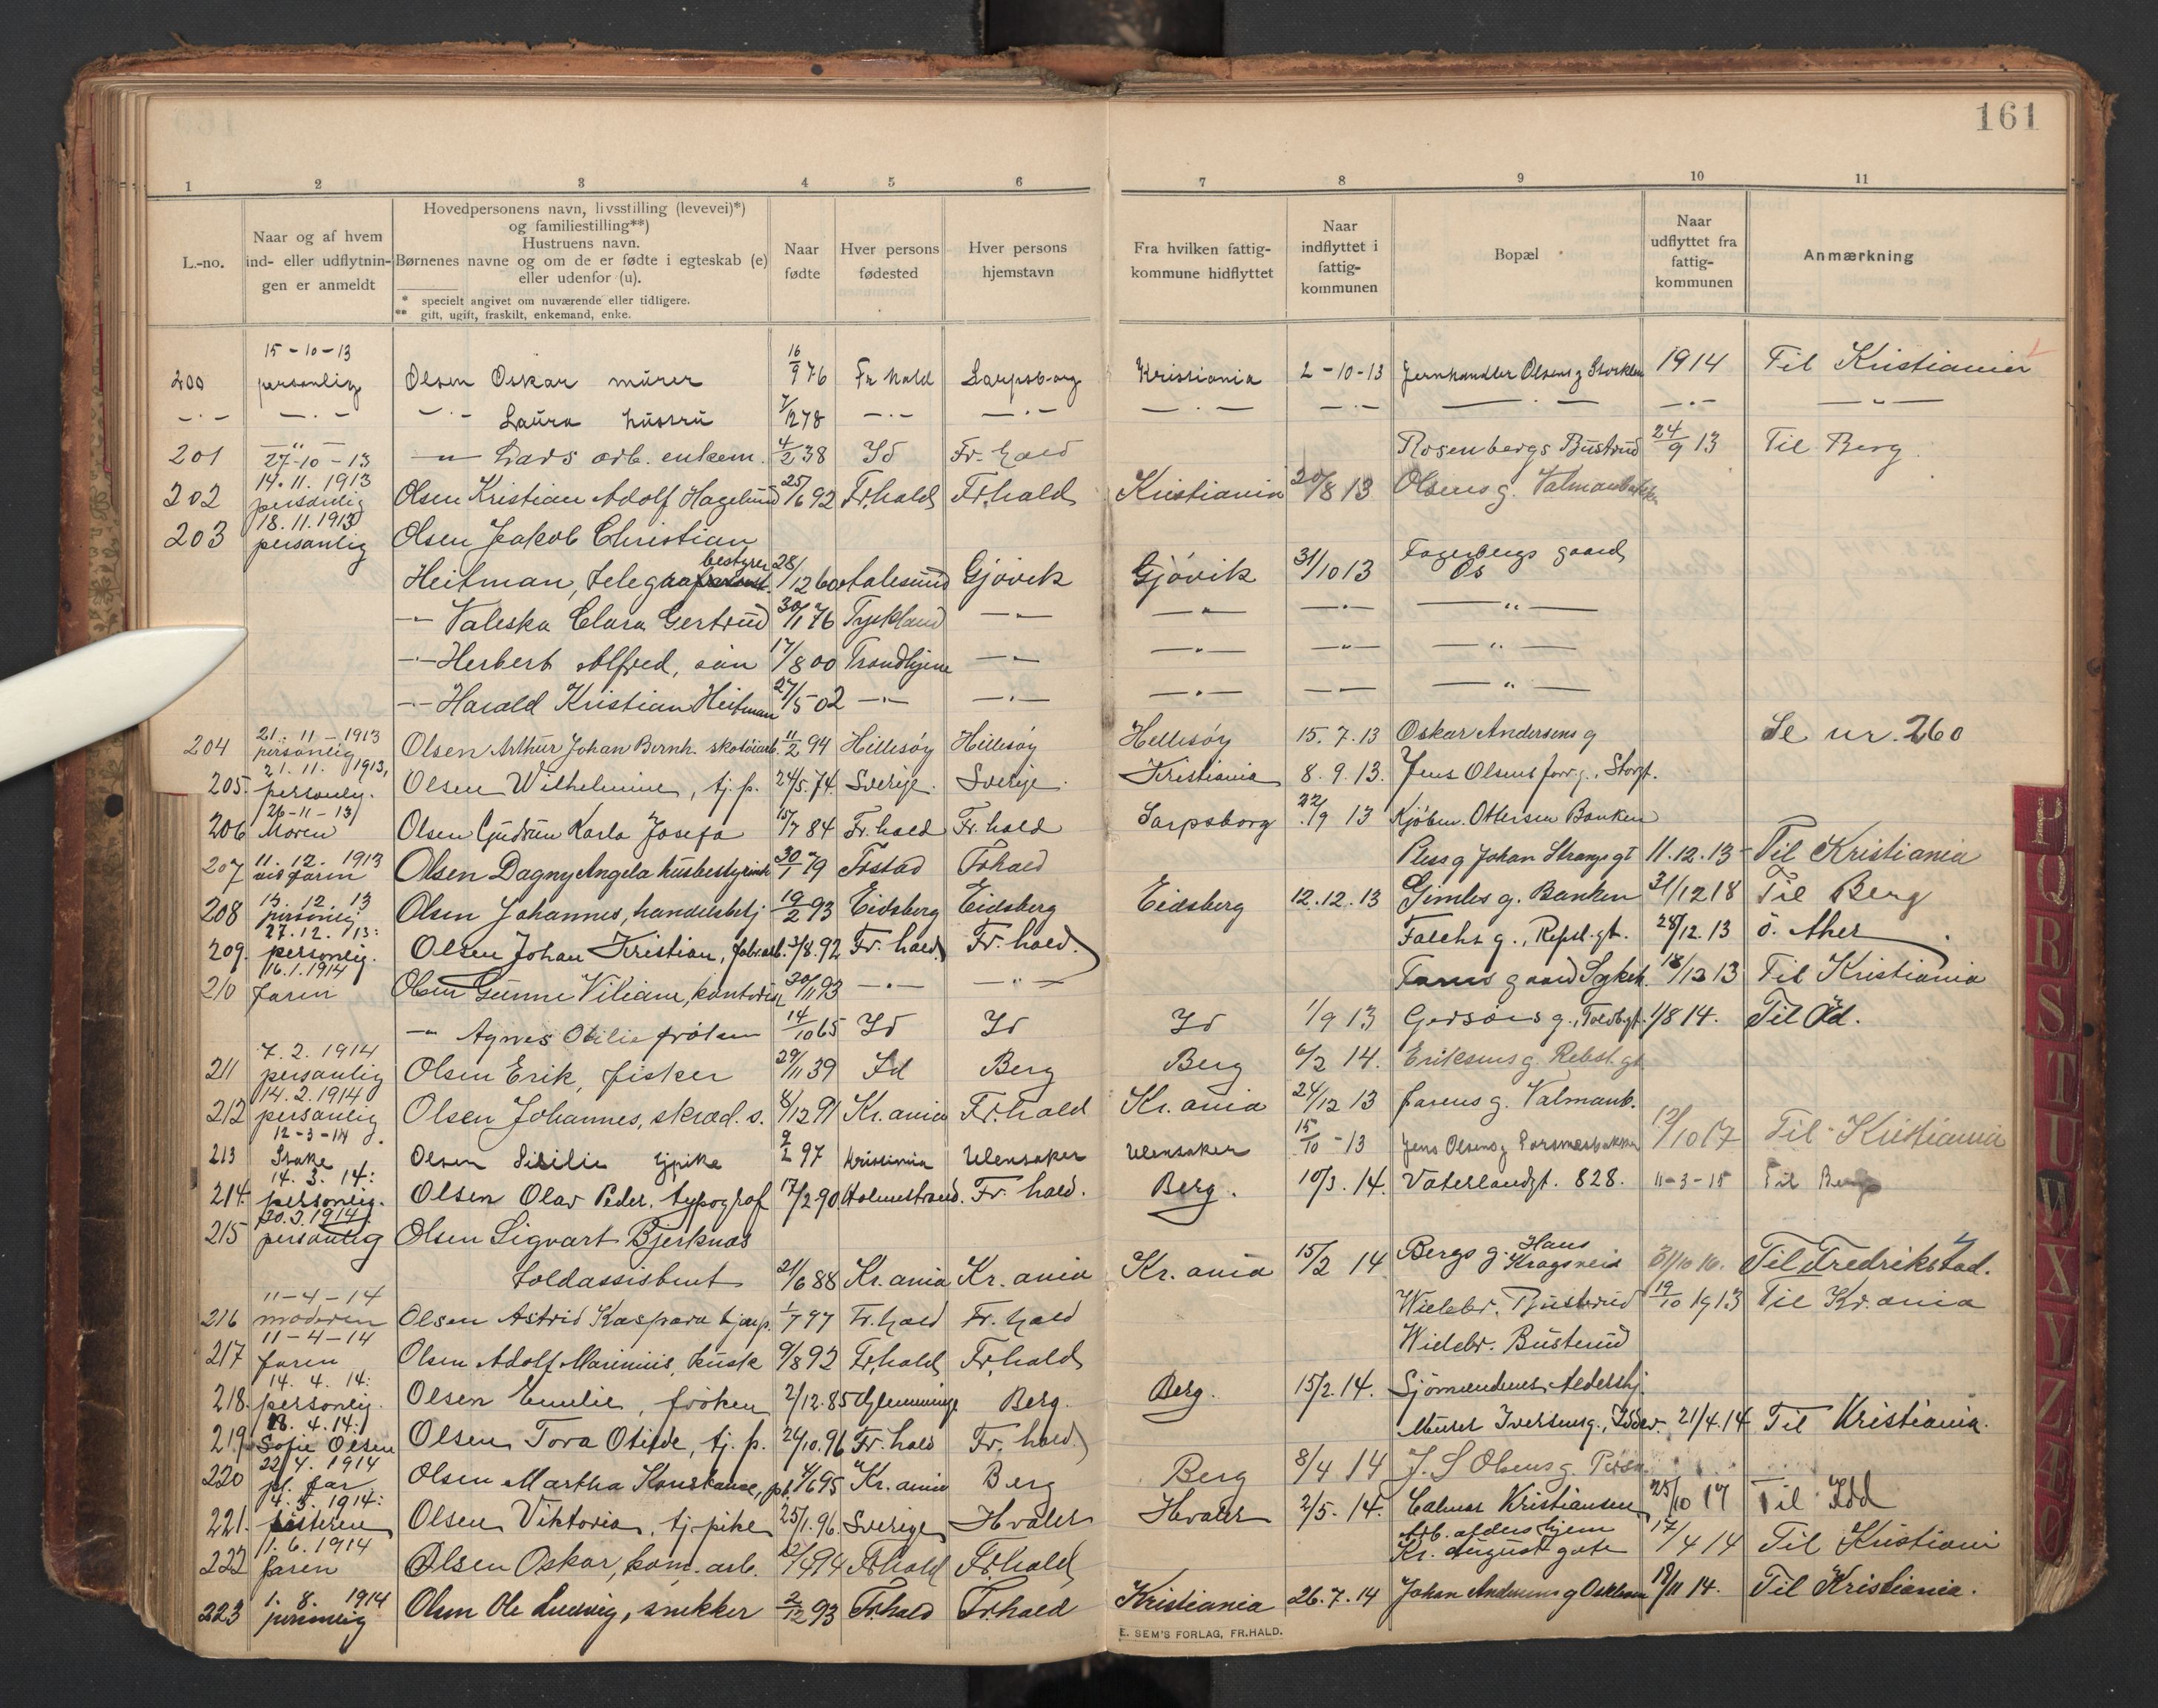 161
1 2 3 4 5 6 7 8 9 10 11
L.-no.
Naar og af hvem ind- eller udflytnin- gen er anmeldt
Hovedpersonens navn, livsstilling (levevei)*) og familiestilling**) Hustruens navn. Børnenes navne og om de er fødte i egteskab (e) eller udenfor (u).
* specielt angivet om nuværende eller tidligere.
** gift, ugift, fraskilt, enkemand, enke.
Naar fødte
Hver persons fødested
Hver persons hjemstavn
Fra hvilken fattig- kommune hidflyttet
Naar indflyttet i fattig- kommunen
Bopæl
Naar udflyttet fra fattig- kommunen
Anmærkning
15-10-13
200 personlig Olsen Oskar murer 16/9 76 Fr hald Sarpsborg Kristiania 2-10-13 Jernhandler Olsens g 1914 Til Kristiania
— " — — " — — " — Laura hustru 7/12 78 — " — — " — — " — — " — — " — — " — — " —
— " —
201 27-10-13 — " — Lars arb. enkem. 4/2 38 Id Fr. hald Rosenbergs Busterud 24/9 13 Til Berg
14.11.1913
202 personlig Olsen Kristian Adolf Hagelund 25/6 92 Fr.hald Fr.hald Kristiania 20/8 13 Olsens g.
18.11.1913
203 personlig Olsen Jakob Christian
bestyrer
Heitman, 28/12 60 Aalesund Gjøvik Gjövik 31/10 13 Fagerbergs gaard Os
— " — Valeska Clara Gertrud 30/1 76 Tyskland — " — — " — — " — — " —
— " — Herbert Alfred, sön 17/8 00 Trondhjem — " — — " — — " — — " —
— " — Harald Kristian Heitman 27/5-02 — " — — " — — " — — " — — " —
21.11-1913
204 personlig Olsen Arthur Johan Bernh. skotöiarb. 11/2 94 Hillesöy Hillesöy Hellesöy 15.7.13 Oskar Andersens g Se nr. 260
21.11.1913,
205. personlig. Olsen Wilhelmine, tj. p. 24/5.74. Sverige. Sverige. Kristiania 8.9.13. Jens Olsens forr. g., Storgt.
26-11-13
206 Moren Olsen Gudrun Karla Josefa 15/7 84 Fr. hald Fr. hald Sarpsborg 22/9 13 Kjöbm. Ottersen Banken
11.12.1913
207 ved faren Olsen Dagny Angela husbestyrinde 30/1 79 Frstad Frhald Pless g Johan Stangs gt 11.12.13 Til Kristiania
13.12.13
208 personlig Olsen Johannes, handelsbetj 19/2 93 Eidsberg Eidsberg Eidsberg 12.12.13 Gimles g. Banken 31/12 18 Til Berg
27.12.13:
209. personlig. Olsen Johan Kristian, fabr.arb. 3/8.92 Fr. hald. Fr. hald. Falchs g., Repsl.gt. 28/12.13 ö. Aker
16.1.1914
210 faren Olsen Gunne Viliam, kontorist 20/11 93 — " — — " — gaard 18/12 13 Til Kristiania
— " — Agnes Otilie fröken 14/10 65 Id Id Id 1/9 13 g., Toldbgt. 1/8 14. Til Id.
7.2.1914
211 personlig Olsen Erik, fisker 29/11 39 Id Berg Berg 6/2 14. Eriksens g. Rebsl.gt
14.2.1914
212 personlig Olsen Johannes, skræd. s. 8/12 91 Kr.ania Fr.hald Kr.ania 24/12 13 farens g. Valmank.
12-3-14
213 Olsen Sisilie tjpike 9/2 97 Kristiania Ulensaker Ulensaker 15/10-13 Jens Olsens g 12/10 17 Til Kristiania
14.3.14:
214. personlig. Olsen Olav Peder, typograf 17/2.90. Holmestrand. Fr. hald. Berg. 10/3.14. Vaterlandgt. 828. 11-3-15 Til Berg
20.3.1914.
215 personlig Olsen Sigvart Bjerknæs
Toldassistent 21/6 88 Kr.ania Kr.ania Kr.ania 15/2 14 Bergs g. Hans Kragsvei 31/10 16. Til Fredrikstad.
11-4-14
216 moderen Olsen Astrid Kaspara tj.p. 1/7 97 Fr. hald Fr. hald Wielebr. Busterud 19/10 1913 Til Kr.ania
11-4-14
217 faren Olsen Adolf Marinius, kusk 9/8 92 Frhald Frhald Wielebr. Busterud
14.4.14:
218. personlig. Olsen Emilie, fröken 2/12.85 Glemminge Berg. Berg. 15/2.14. Sjömændenes Aldershj.
18.4.14:
219 Sofie Olsen Olsen Tora Otilde, tj. p. 24/10.96 Fr. hald Fr. hald Murer Iversens g., 21/4.14 Til Kristiania.
22/4.1914
220 pl. far Olsen Martha Konstanse, Kr.ania Berg Berg 8/4 14 J. S Olsens g.
4.5.1914:
221. søsteren Olsen Viktoria, tj-pike 25/1.96. Sverige Hvaler Hvaler 2/5.14. Calmar Kristiansen 25/10 17 Til Idd
11.6.1914
222 faren Olsen Oskar, kom. arb. Frhald Fr.hald Arb. aldershjem Kr. Augusts gate 17/4 14 Til Kristiania
1.8.1914
223 personlig Olsen Ole Ludvig, snekker 2/12 93 Fr.hald Fr.hald Kristiania 26.7.14 Johan Andersens g 11 14. Til Kristiania.
E. SEM'S FORLAG, FR.HALD.
P
Q
R
S
T
U
W
X
Y
Z
Æ
Ø